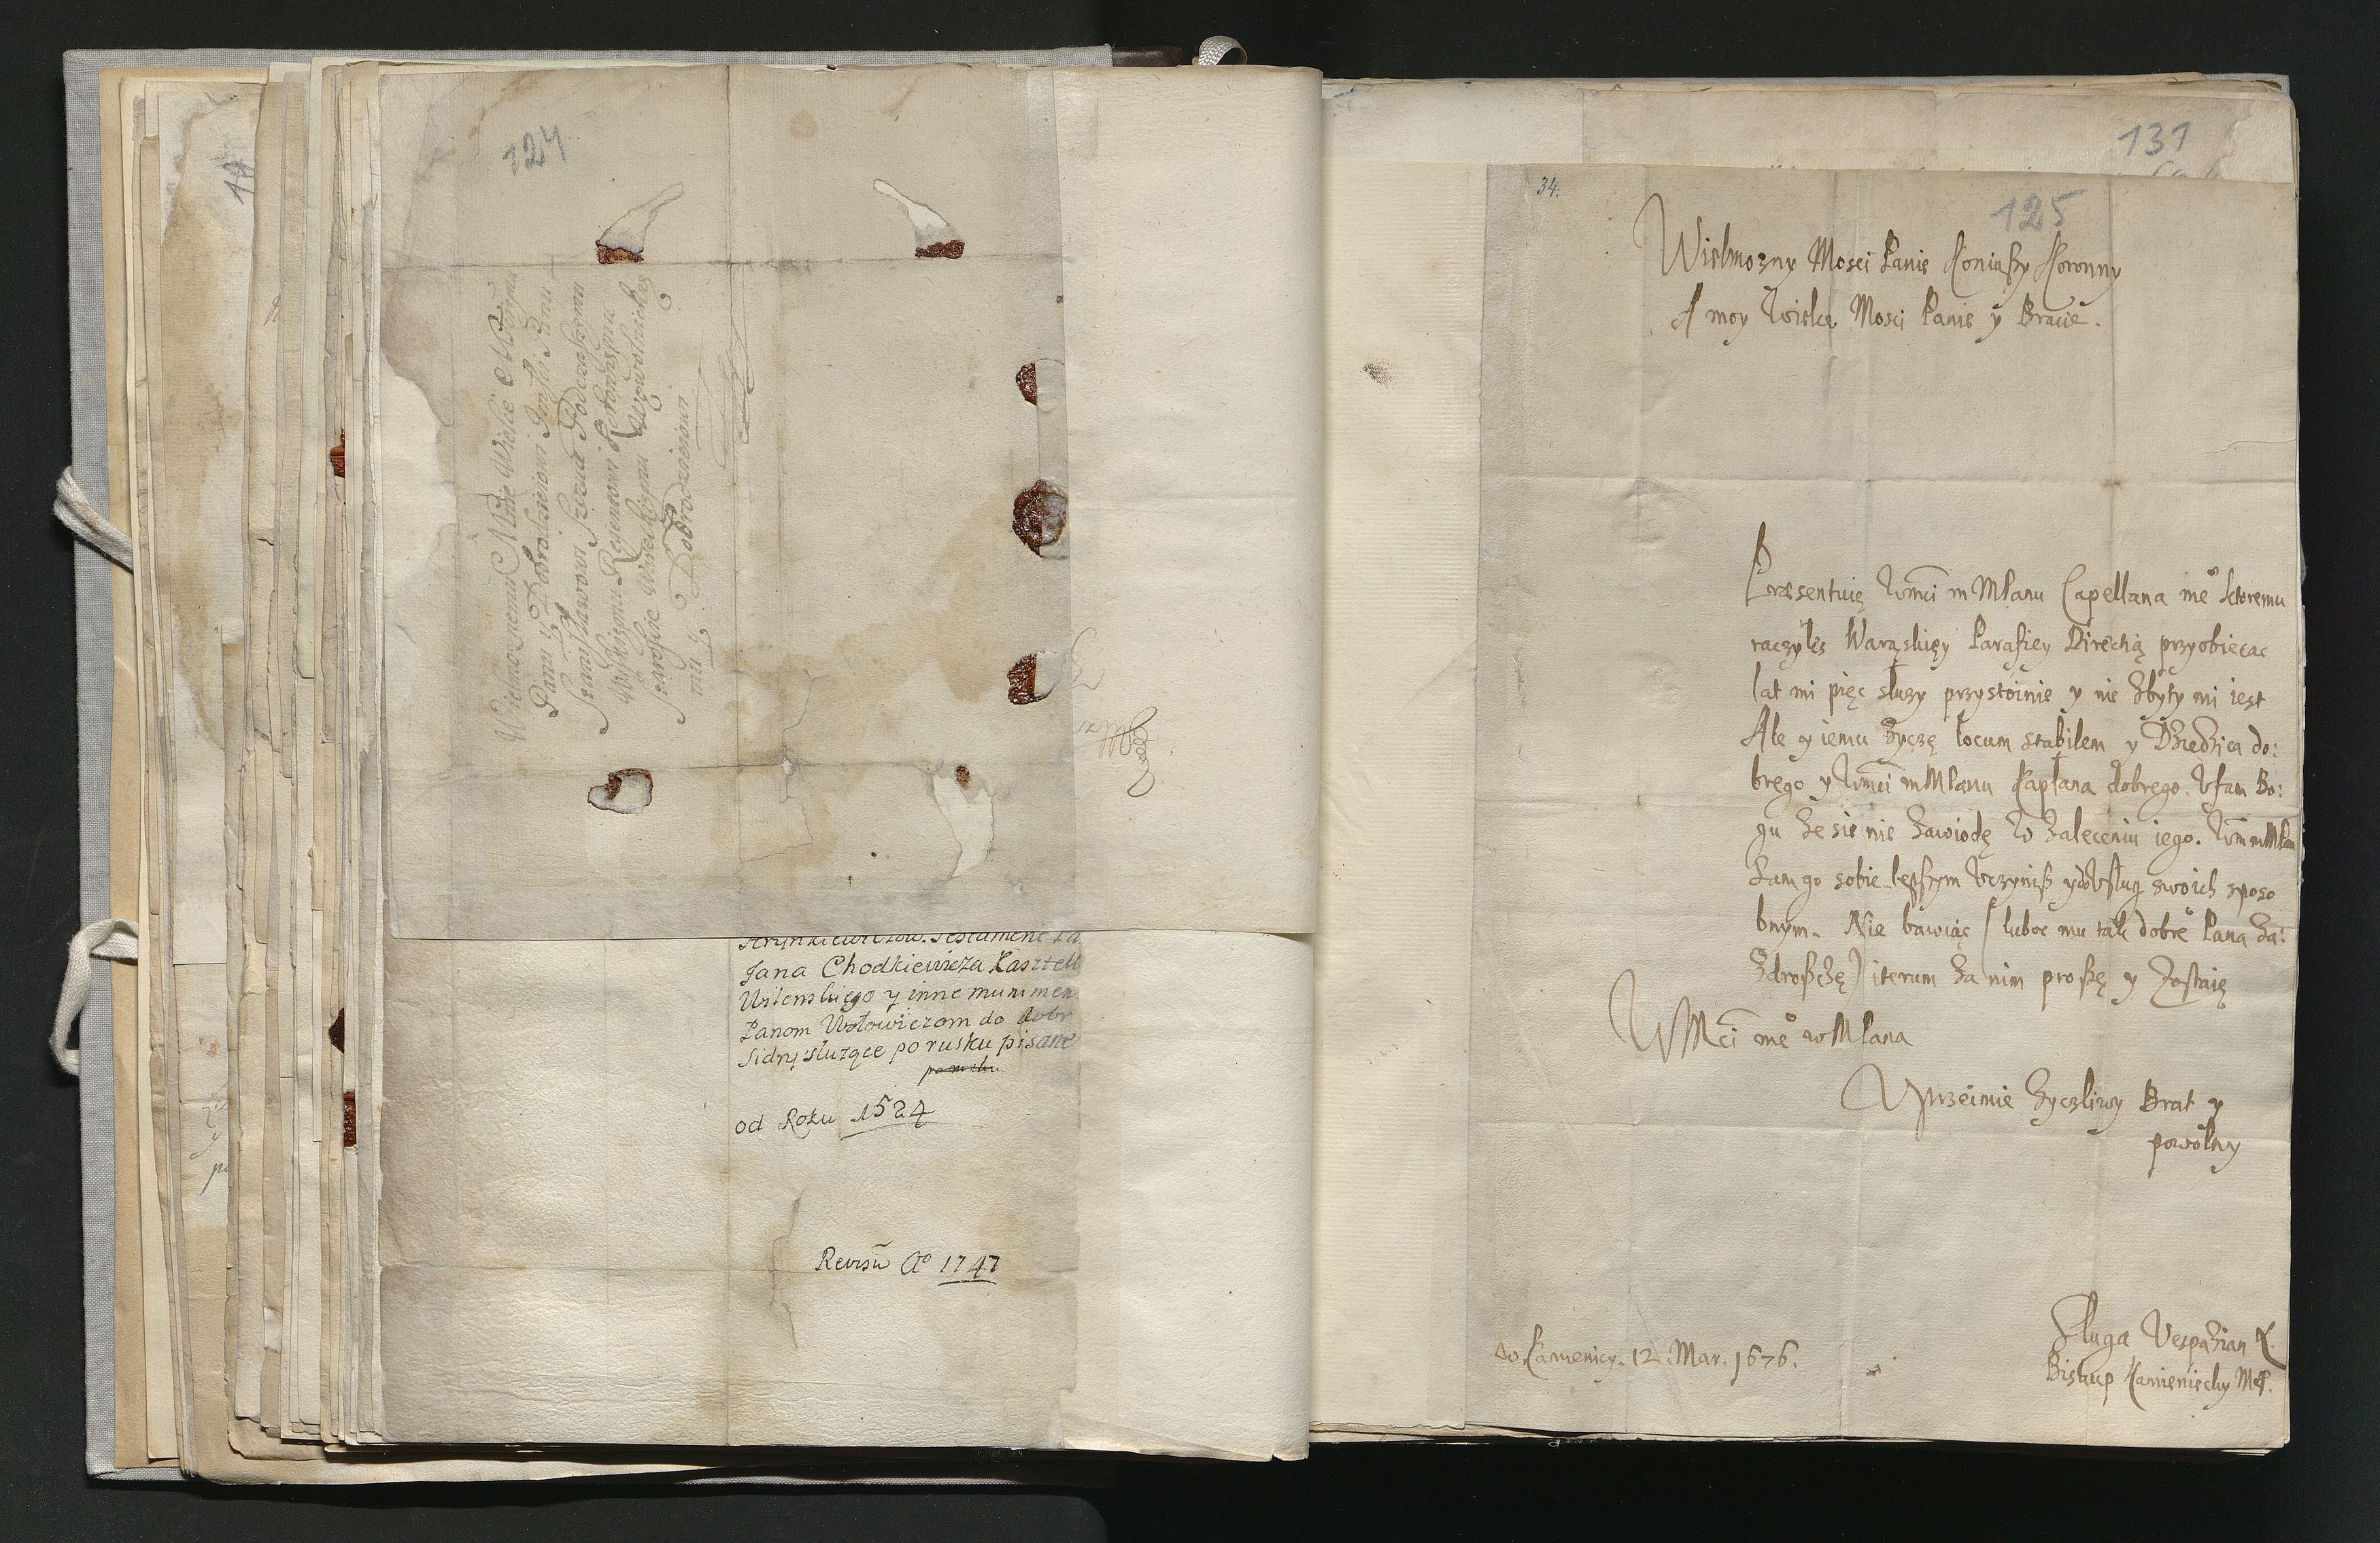 124
Wielmoznemu Mnie Wielce Mciwemu
Panu y Dobrodzieiowi Jmsci Panu
Stanisławowi Podczaszemu
Staroscie
mu y Dobrodzieiowi
Jana Chodkiewicza Kasztell
Wilenskiego y inne munimen
Panom Wołowiczom do dobr
Sidry służące po rusku pisane
po rusku
od Roku 1524
Revisu Ao 1747
131
34.
125
Wielmozny Mosci Panie Koniuszy Koronny
A moy Wielce Mosci Panie y Bracie.
Præsentuię Wmci m MPanu Capellana me° ktoremu
raczyłes Warąskiey Parafiey Directią przyobiecac
lat mi pięc słuzy przystoinie y nie zbyty mi iest
Ale y iemu zyczę locum stabilem y Dziedzica do:
brego y Wmci m MPanu Kapłana dobrego. Ufam Bo:
gu ze sie nie zawiodę w zaleceniu iego. Wm mMPan
Sam go sobie lepszym uczynisz y do usług swoich sposo
bnym. Nie bawiąc (luboc mu tak dobre° Pana za:
zdroszczę) iterum za nim proszę y zostaię
WMci me° wMPana
Uprzeimie zyczliwy Brat y
powolny
Sługa Vespazian
Biskup Kamieniecky
w Kamenicy. 12. Mar. 1676.